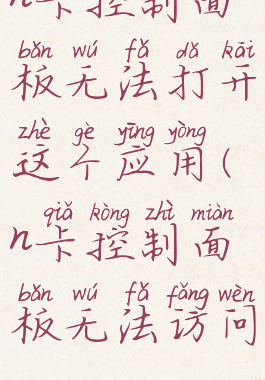 n卡控制面
bǎn wú fǎ dǎ kāi
板无法打开
zhè gè yīng yòng
这个应用(
qiǎ kòng zhì miàn
n卡控制面
bǎn wú fǎ fǎng wèn
板无法访问